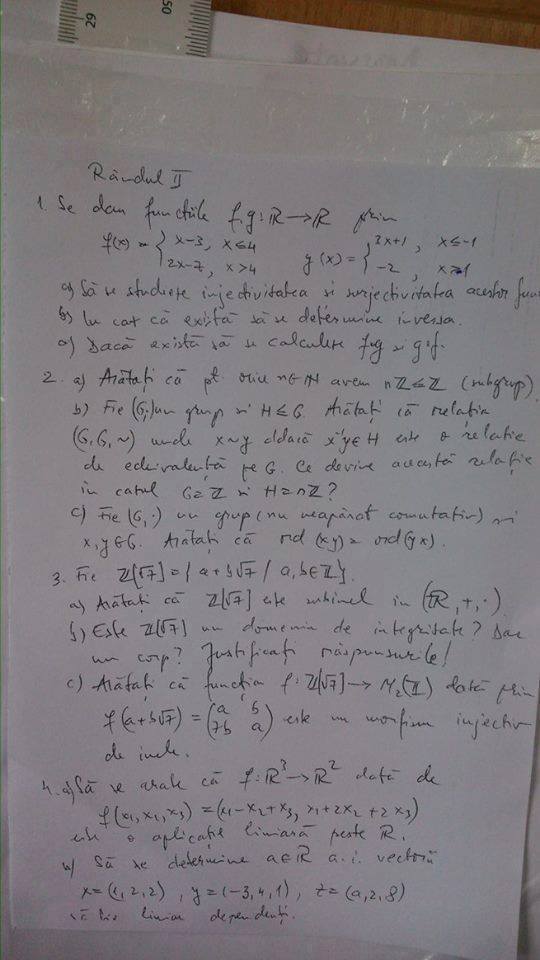 29
50
Rândul II
1. Se dau funcțiile f,g: ℝ→ℝ prin
f(x) = { x-3, x≤4 g(x) = { 2x+1, x≤-1
2x-7, x>4 -2, x>1
a) Să se studieze injectivitatea si surjectivitatea acestor func
b) In caz că există să se determine inversa.
c) Dacă există să se calculeze f∘g si g∘f.
2. a) Arătați că pt orice n∈ℕ avem nℤ≤ℤ (subgrup)
b) Fie (G,·) un grup si H≤G. Arătați că relația
(G,G,~) unde x~y ddacă x⁻¹y∈H este o relatie
de echivalență pe G. Ce devine această relație
in cazul G=ℤ si H=nℤ?
c) Fie (G,·) un grup (nu neapărat comutativ) si
x,y∈G. Arătați că ord(xy)=ord(yx).
3. Fie ℤ[√7]={a+b√7 / a,b∈ℤ}.
a) Arătați că ℤ[√7] este subinel in (ℝ,+,·)
b) Este ℤ[√7] un domeniu de integritate? Dar
un corp? Justificați răspunsurile!
c) Arătați că funcția f: ℤ[√7]→M₂(ℤ) dată prin
f(a+b√7) = (a b
7b a) este un morfism injectiv
de inele.
4. a) Să se arate că f: ℝ³→ℝ² dată de
f(x₁,x₂,x₃)=(x₁-x₂+x₃, x₁+2x₂+2x₃)
este o aplicație liniară peste ℝ.
b) Să se determine a∈ℝ a.i. vectorii
x=(1,2,2), y=(-3,4,1), z=(a,2,8)
să fie liniar dependenți.